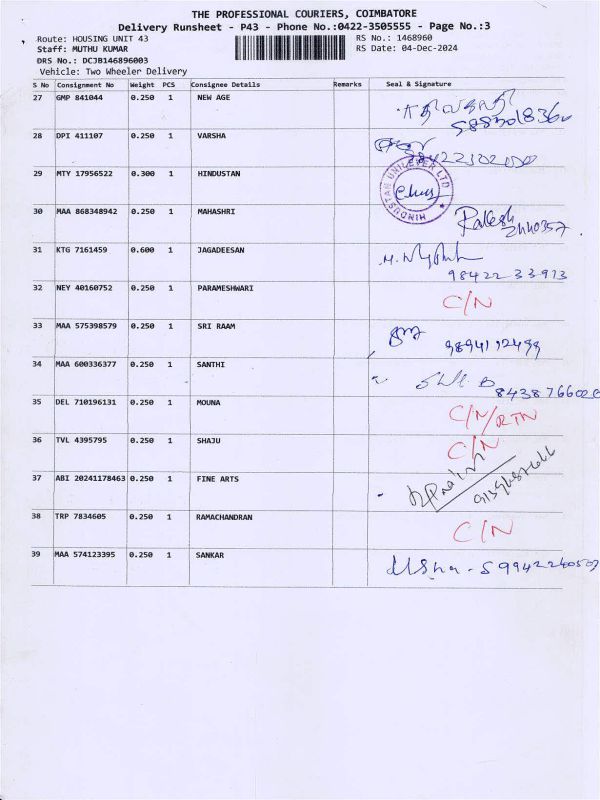 THE PROFESSIONAL COURIERS, COIMBATORE
Delivery Runsheet - P43 - Phone No.:0422-3505555 - Page No.:3
Route: HOUSING UNIT 43 RS No.: 1468960
Staff: MUTHU KUMAR RS Date: 04-Dec-2024
DRS No.: DCJB146896003
Vehicle: Two Wheeler Delivery
S No Consignment No Weight PCS Consignee Details Remarks Seal & Signature
27 GMP 841044 0.250 1 NEW AGE
28 DPI 411107 0.250 1 VARSHA
29 MTY 17956522 0.300 1 HINDUSTAN HINDUSTAN UNILEVER LTD
30 MAA 868348942 0.250 1 MAHASHRI Rakesh
31 KTG 7161459 0.600 1 JAGADEESAN
98422 33913
32 NEY 40160752 1 0.250 PARAMESHWARI C/N
33 MAA 575398579 0.250 1 SRI RAAM
9894112499
34 MAA 600336377 0.250 1 SANTHI
35 DEL 710196131 0.250 1 MOUNA C/N/RTN
36 TVL 4395795 0.250 1 SHAJU C/N
37 ABI 20241178463 0.250 1 FINE ARTS
38 TRP 7834605 0.250 1 RAMACHANDRAN C/N
39 MAA 574123395 0.250 1 SANKAR